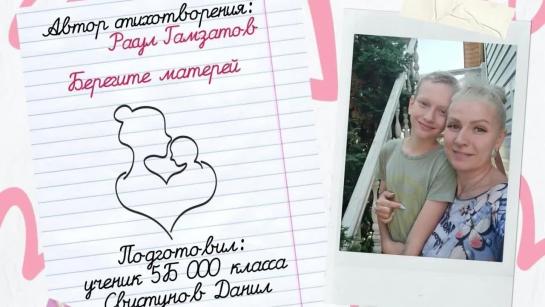 Автор стихотворения:
Расул Гамзатов
Берегите матерей
Подготовил:
ученик 5Б ООО класса
Свистунов Данил